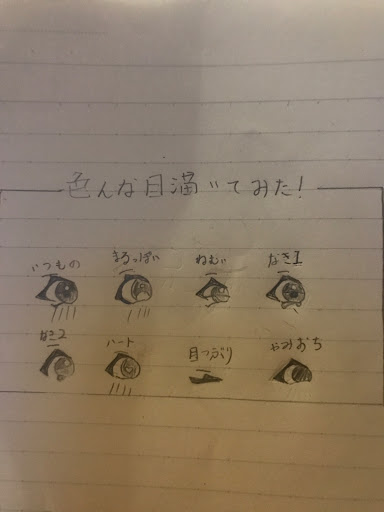 色んな目描いてみた!
いつもの まるっぽい ねむい なき1
なき2 ハート 目つぶり やみおち